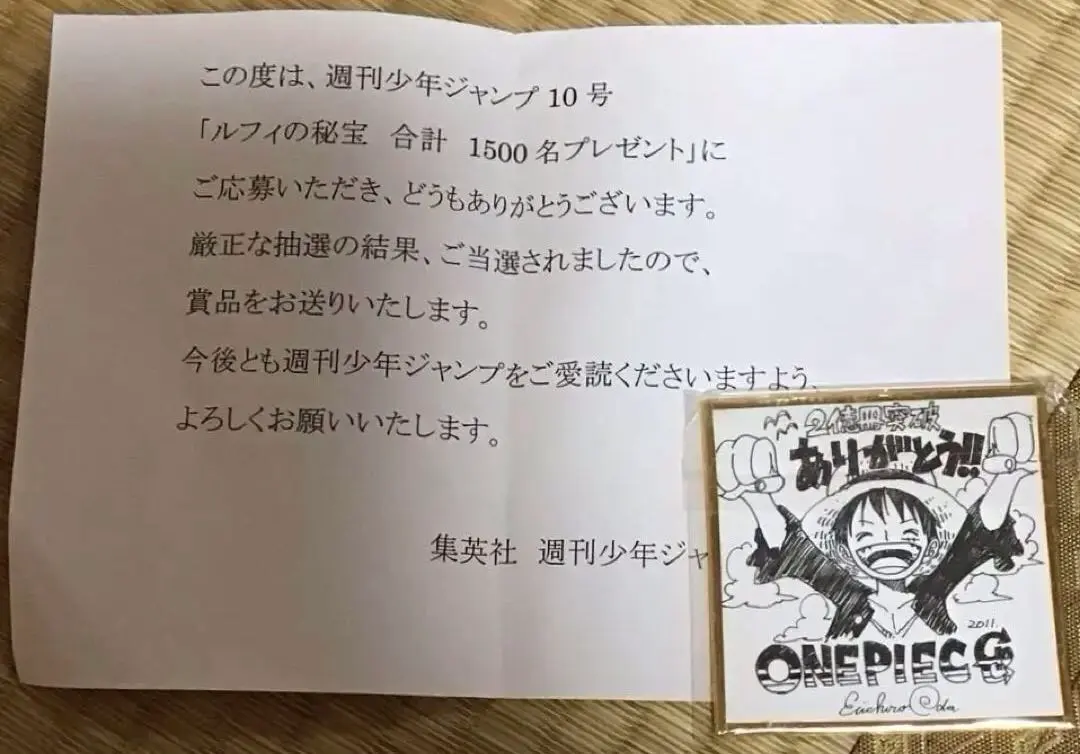 この度は、週刊少年ジャンプ 10 号
「ルフィの秘宝　合計　1500 名プレゼント」に
ご応募いただき、どうもありがとうございます。
厳正な抽選の結果、ご当選されましたので、
賞品をお送りいたします。
今後とも週刊少年ジャンプをご愛読くださいますよう、
よろしくお願いいたします。
集英社　週刊少年ジャ
2億冊突破
ありがとう!!
2011.
ONE PIECE
Eiichiro Oda